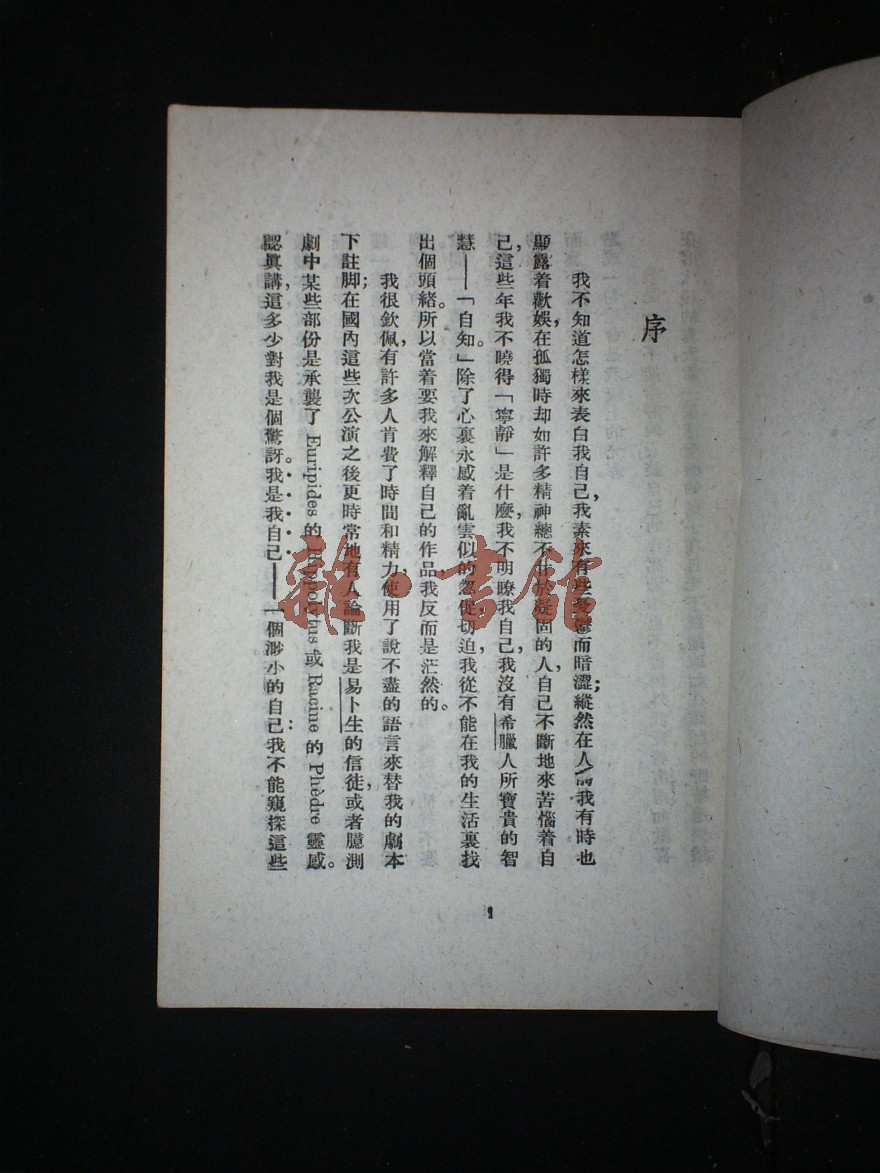 序
我不知道怎樣來表白我自己，我素來有些憂鬱而暗澀；縱然在人前我有時也
顯露着歡娛，在孤獨時却如許多精神總不甘於凝固的人，自己不斷地來苦惱着自
己，這些年我不曉得「寧靜」是什麼，我不明瞭我自己，我沒有希臘人所寶貴的智
慧——「自知」。除了心裏永感着亂雲似的忽促，切迫，我從不能在我的生活裏找
出個頭緒。所以當着要我來解釋自己的作品，我反而是茫然的。
我很欽佩，有許多人肯費了時間和精力，使用了說不盡的語言來替我的劇本
下註脚；在國內這些次公演之後更時常地有人論斷我是易卜生的信徒，或者臆測
劇中某些部份是承襲了 Euripides 的 Hippolytus 或 Racine 的 Phèdre 靈感。
認眞講，這多少對我是個驚訝。我是我自己——一個渺小的自己：我不能窺探這些
1
雜·書館